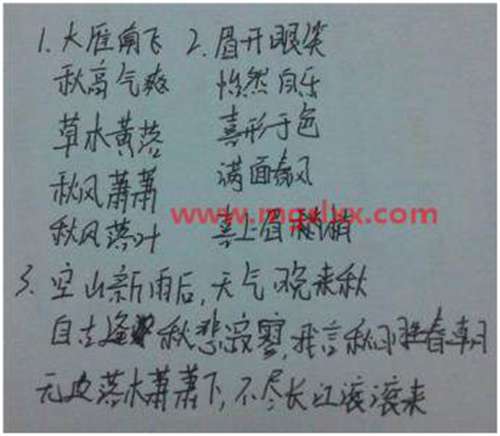 1. 大雁南飞 2. 眉开眼笑
秋高气爽 怡然自乐
草木黄落 喜形于色
秋风萧萧 满面春风
秋风落叶 喜上眉梢
3. 空山新雨后,天气晚来秋
自古逢秋悲寂寥,我言秋日胜春朝
无边落木萧萧下,不尽长江滚滚来